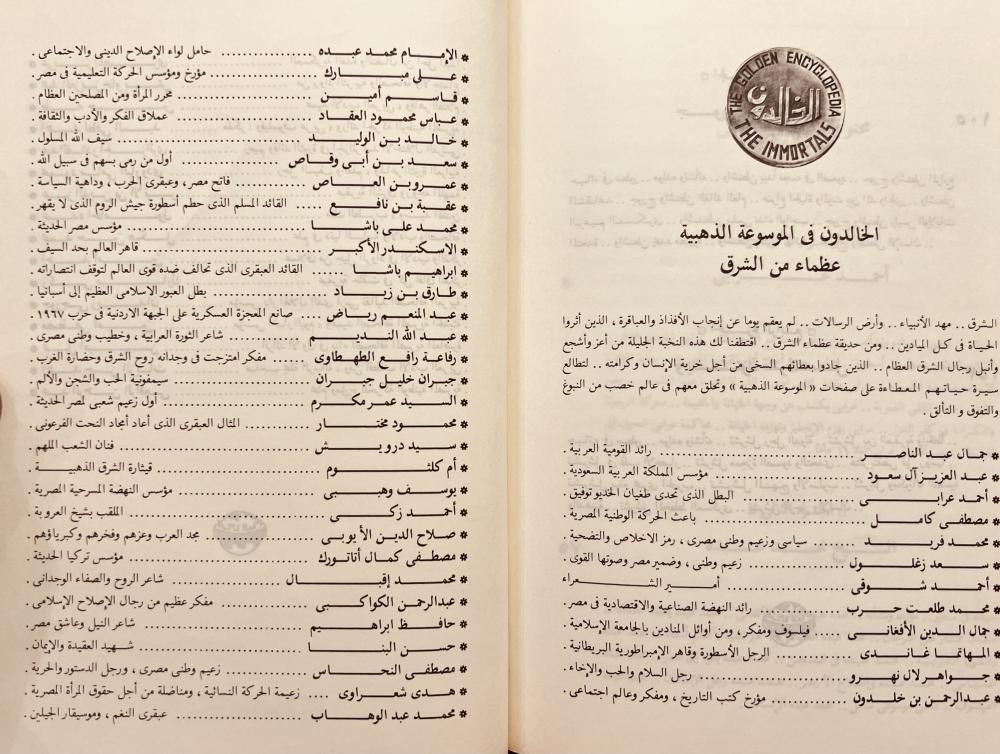 THE GOLDEN ENCYCLOPEDIA
الخالدون
THE IMMORTALS
الخالدون فى الموسوعة الذهبية
عظماء من الشرق
الشرق . . مهد الأنبياء . . وأرض الرسالات . . لم يعقم يوما عن إنجاب الأفذاذ والعباقرة ، الذين أثروا
الحياة فى كل الميادين . . ومن حديقة عظماء الشرق . . اقتطفنا لك هذه النخبة الجليلة من أعز وأشجع
وأنبل رجال الشرق العظام . . الذين جادوا بعطائهم السخى من أجل حرية الإنسان وكرامته . . لتطالع
سيرة حياتهم المعطاءة على صفحات « الموسوعة الذهبية » وتحلق معهم فى عالم خصب من النبوغ
والتفوق و التألق .
* جمال عبد الناصر ........ رائد القومية العربية .
* عبد العزيز آل سعود ........ مؤسس المملكة العربية السعودية .
* أحمد عرابى ........ البطل الذى تحدى طغيان الخديو توفيق .
* مصطفى كامل ........ باعث الحركة الوطنية المصرية .
* محمد فريد ........ سياسى وزعيم وطنى مصرى ، رمز الاخلاص والتضحية .
* سعد زغلول ........ زعيم وطنى ، وضمير مصر وصوتها القوى .
* أحمد شوقى ........ أمير الشعراء
* محمد طلعت حرب ........ رائد النهضة الصناعية والاقتصادية فى مصر .
* جمال الدين الأفغانى ..... فيلسوف ومفكر ، ومن أوائل المنادين بالجامعة الإسلامية .
* المهاتما غاندى ........ الرجل الأسطورة وقاهر الإمبراطورية البريطانية .
* جواهر لال نهرو ........ رجل السلام والحب والإخاء .
* عبدالرحمن بن خلدون ........ مؤرخ كتب التاريخ ، ومفكر وعالم اجتماعى .
* الإمام محمد عبده ........ حامل لواء الإصلاح الدينى والاجتماعى .
* على مبارك ........ مؤرخ ومؤسس الحركة التعليمية فى مصر .
* قاسم أمين ........ محرر المرأة ومن المصلحين العظام .
* عباس محمود العقاد ........ عملاق الفكر والأدب والثقافة .
* خالد بن الوليد ........ سيف الله المسلول .
* سعد بن أبى وقاص ........ أول من رمى بسهم فى سبيل الله .
* عمرو بن العاص ........ فاتح مصر ، وعبقرى الحرب ، وداهية السياسة .
* عقبة بن نافع ..... القائد المسلم الذى حطم أسطورة جيش الروم الذى لا يقهر .
* محمد على باشا ........ مؤسس مصر الحديثة .
* الاسكندر الأكبر ........ قاهر العالم بحد السيف .
* ابراهيم باشا ...... القائد العبقرى الذى تحالف ضده قوى العالم لتوقف انتصاراته .
* طارق بن زياد ........ بطل العبور الاسلامى العظيم إلى أسبانيا .
* عبد المنعم رياض ..... صانع المعجزة العسكرية على الجبهة الاردنية فى حرب ١٩٦٧ .
* عبد الله النديم ........ شاعر الثورة العرابية ، وخطيب وطنى مصرى .
* رفاعة رافع الطهطاوى ........ مفكر امتزجت فى وجدانه روح الشرق وحضارة الغرب .
* جبران خليل جبران ........ سيمفونية الحب والشجن والألم .
* السيد عمر مكرم ........ أول زعيم شعبى لمصر الحديثة .
* محمود مختار ........ المثال العبقرى الذى أعاد أمجاد النحت الفرعونى .
* سيد درويش ........ فنان الشعب الملهم .
* أم كلثوم ........ قيثارة الشرق الذهبية .
* يوسف وهبى ........ مؤسس النهضة المسرحية المصرية .
* أحمد زكى ........ الملقب بشيخ العروبة .
* صلاح الدين الأيوبى ........ مجد العرب وعزهم وفخرهم وكبرياؤهم .
* مصطفى كمال أتاتورك ........ مؤسس تركيا الحديثة .
* محمد إقبال ........ شاعر الروح والصفاء الوجدانى .
* عبدالرحمن الكواكبى ........ مفكر عظيم من رجال الإصلاح الإسلامى .
* حافظ ابراهيم ........ شاعر النيل وعاشق مصر .
* حسن البنا ........ شهيد العقيدة والإيمان .
* مصطفى النحاس ........ زعيم وطنى مصرى ، ورجل الدستور والحرية .
* هدى شعراوى ... زعيمة الحركة النسائية ، ومناضلة من أجل حقوق المرأة المصرية .
* محمد عبد الوهاب ........ عبقرى النغم ، وموسيقار الجيلين .